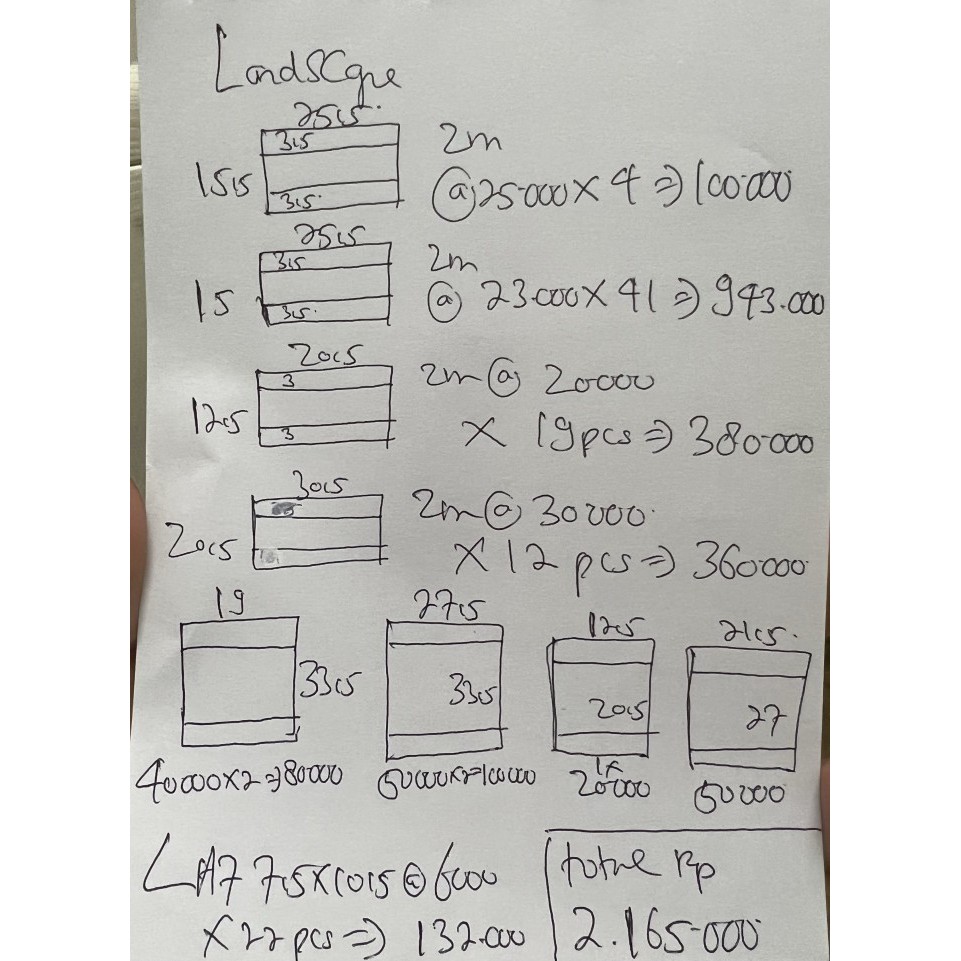 Landscape
25,5
3,5
15,5
3,5
2m
@ 25.000 X 4 => 100.000
25,5
3,5
15
3,5
2m
@ 23.000 X 41 => 943.000
20,5
3
12,5
3
2m @ 20000
X 19 pcs => 380.000
30,5
20,5
2m @ 30000
X 12 pcs => 360000
19
33,5
40000 x 2 => 80000
27,5
33,5
50000 x 2 = 100000
12,5
20,5
1x
20000
21,5
27
50000
A7 7,5 x 10,5 @ 6000
X 22 pcs => 132.000
Rp
2.165.000